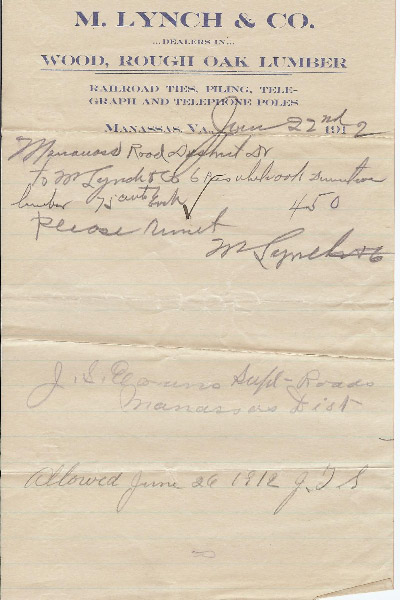 M. LYNCH & CO.
...DEALERS IN...
WOOD, ROUGH OAK LUMBER
RAILROAD TIES, PILING, TELE-
GRAPH AND TELEPHONE POLES
MANASSAS, VA., June 22nd 1912
Manassas Road District Dr
To M Lynch & Co 6 Pcs
lumber 75 cents Each 450
Please remit
M Lynch & Co
J. S. Supt- Roads
Manassas Dist
Allowed June 26 1912 J. T. S